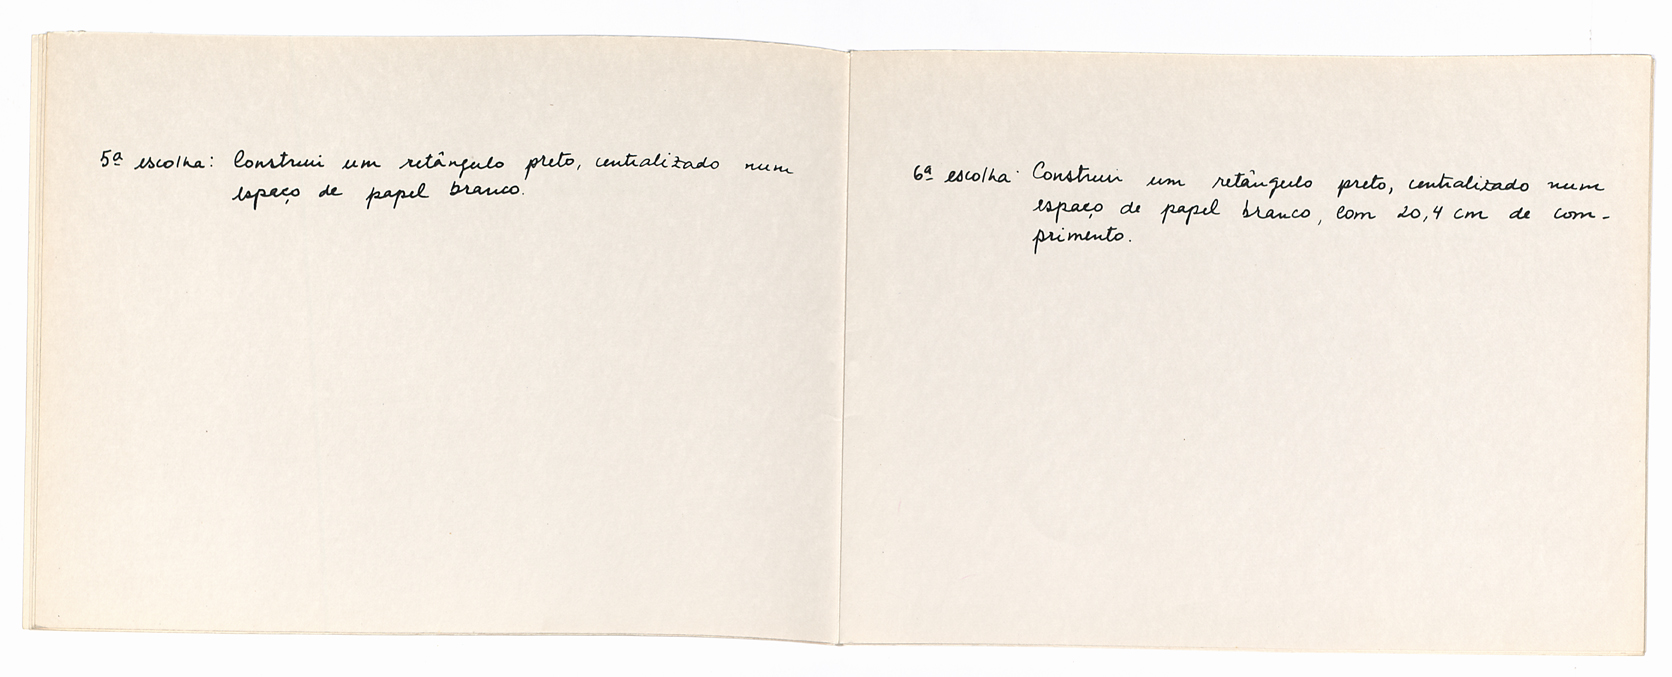 5ª escolha: Construir um retângulo preto, centralizado num
espaço de papel branco.
6ª escolha: Construir um retângulo preto, centralizado num
espaço de papel branco, com 20,4 cm de com-
primento.